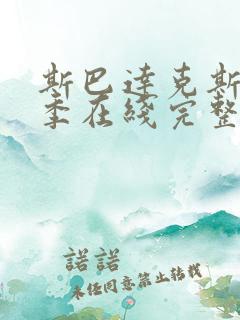 斯巴達克斯
季在綫完整
諾諾
未任同意禁止转载